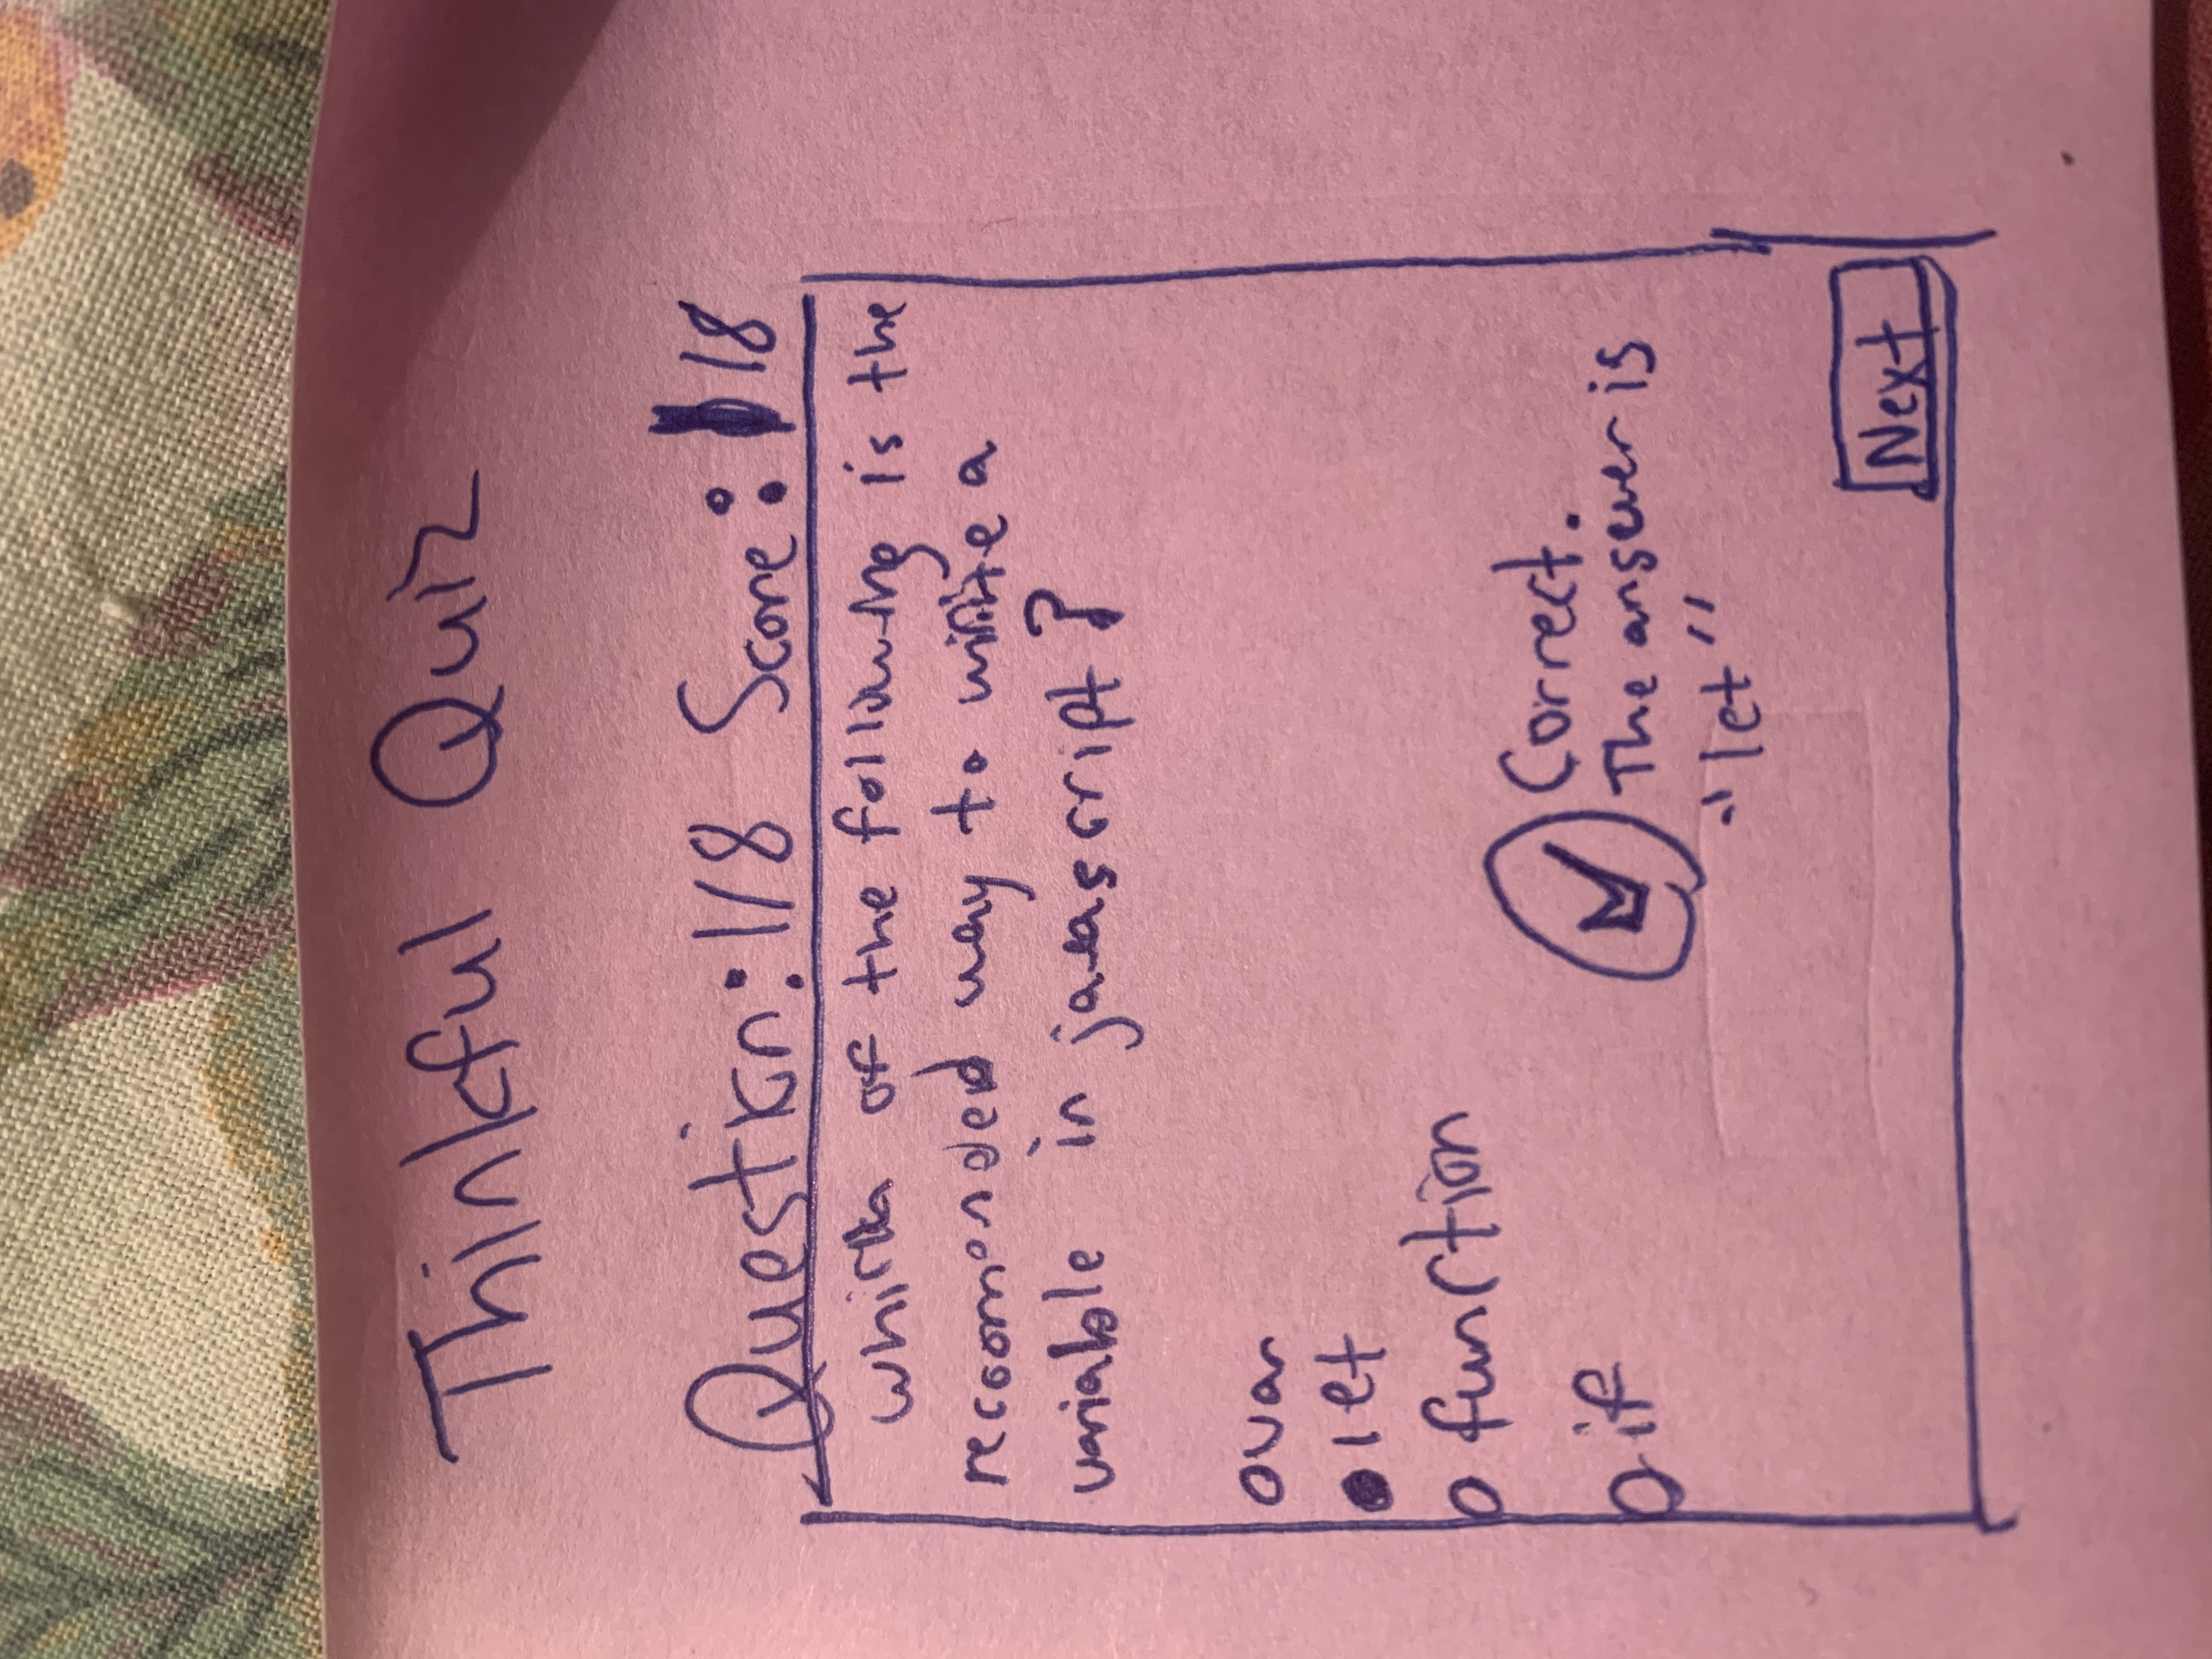 Thinkful Quiz
Question: 1/8 Score: 1/8
which of the following is the
recoomended way to write a
variable in javascript?
var
let
function
if
Correct.
The answer is
"let"
Next